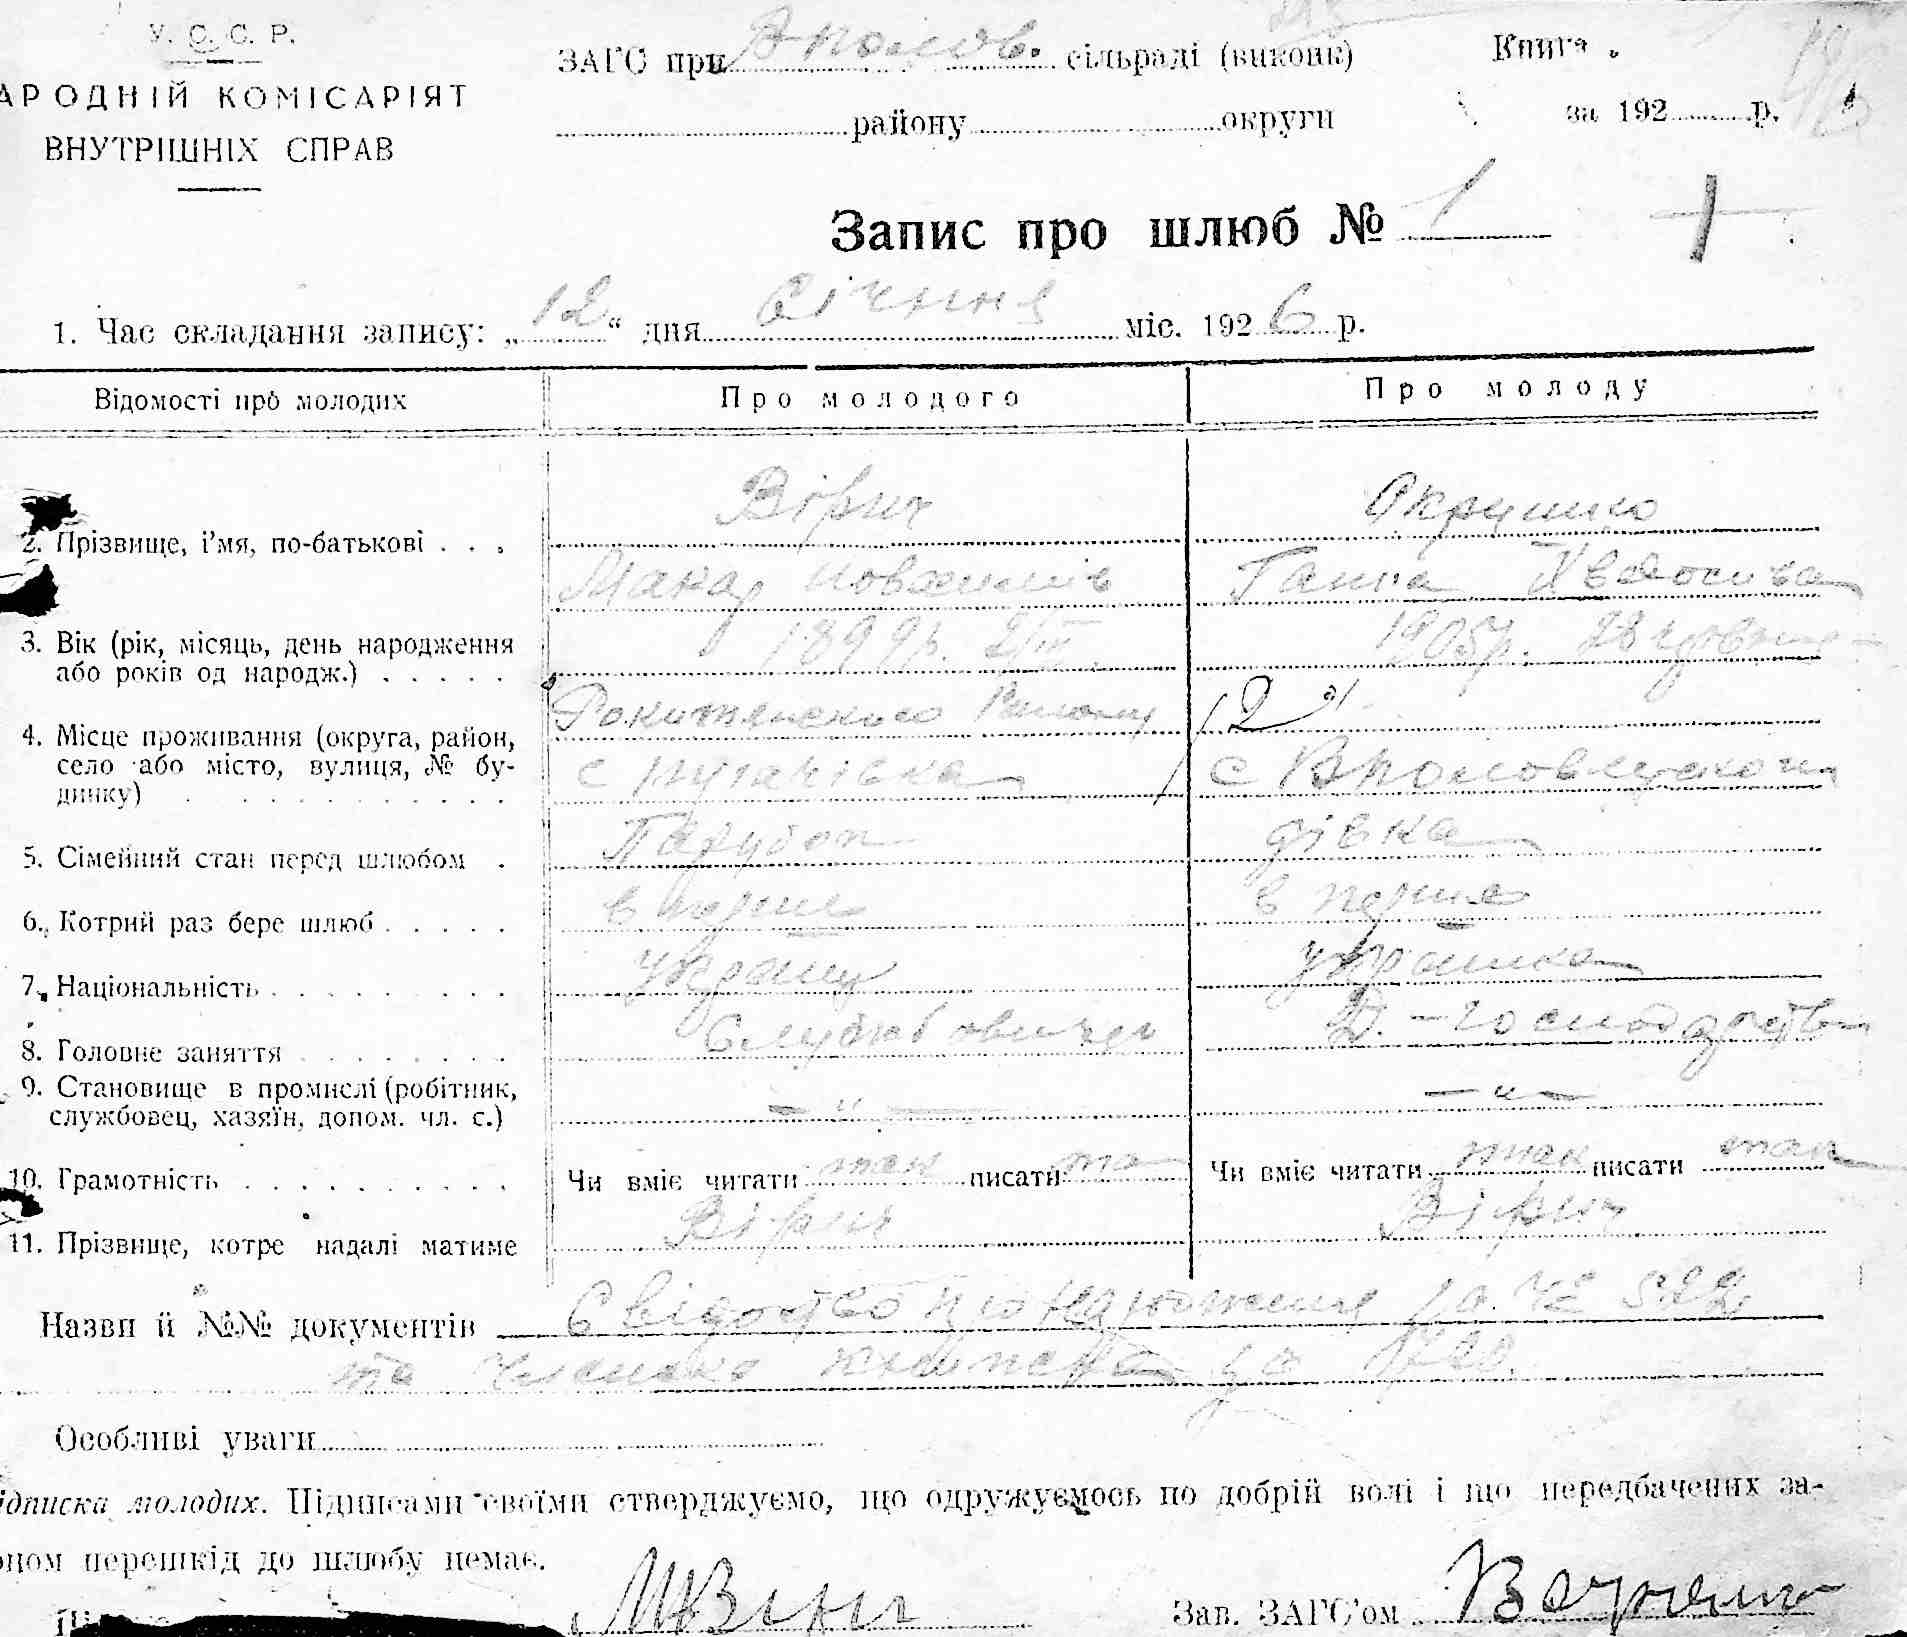 У. С. С. Р.
АРОДНІЙ КОМІСАРІЯТ
ВНУТРІШНІХ СПРАВ
ЗАГС при сільраді (виконк)
району округи
Книга
за 192 р.
Запис про шлюб № 1
1. Час складання запису: „12“ дня Січння міс. 1926 р.
Відомості про молодих Про молодого Про молоду
Вірич
2. Прізвище, і'мя, по-батькові . . .
Макар Ганна
3. Вік (рік, місяць, день народження 1899р. 1905р. 28
або років од народж.) . . . . .
Рокитянського Району
4. Місце проживання (округа, район,
село або місто, вулиця, № бу-
динку) . . . . . . . . . .
с Пугачівка с
5. Сімейний стан перед шлюбом . Парубок дівка
6. Котрий раз бере шлюб . . . . . в перше в перше
7. Національність . . . . . . . . українц українка
8. Головне заняття . . . . . . . Д. - Господарство
9. Становище в промислі (робітник, — „ — — „ —
службовец, хазяїн, допом. чл. с.)
10. Грамотність . . . . . . . . . Чи вміє читати так писати та Чи вміє читати так писати так
11. Прізвище, котре надалі матиме Вірич Вірич
Назви й №№ документів Свідоцтво за №
та Членська книжка за
Особливі уваги
ідписка молодих. Підписами своїми стверджуємо, що одружуємось по добрій волі і що передбачених за-
оном перешкід до шлюбу немає.
Зав. ЗАГС'ом